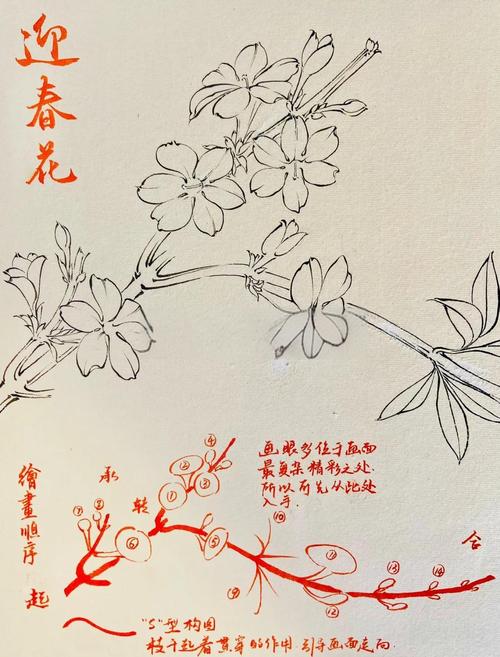 迎春花
画眼多位于画面
最复杂精彩之处
所以可先从此处
入手.
繪畫順序
起
承
转
合
①
②
③
④
⑤
⑥
⑦
⑧
⑨
⑩
⑪
⑫
⑬
⑭
"S"型构图
枝干起着贯穿的作用.引导画面走向.